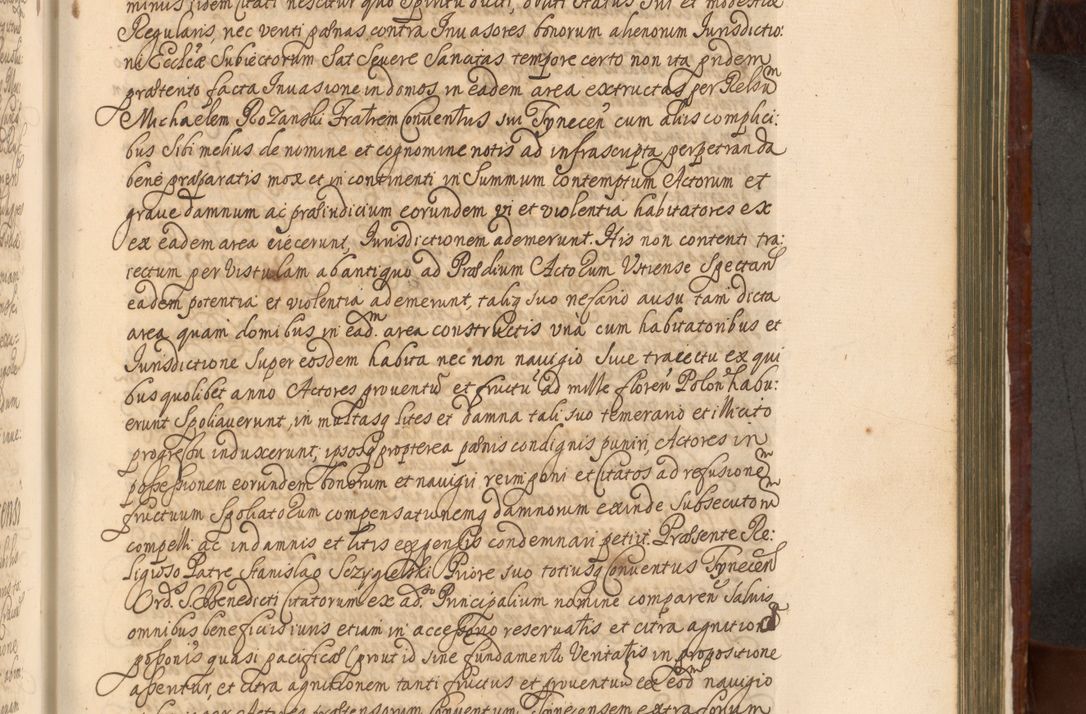 minus iidem Citati nescitur quo Spiritu ducti, obliti status sui et modestiæ
Regularis, nec venti pænas contra Inuasores bonorum alienorum Iurisdictio:
ni Ecclcæ Subiectorum Sat Seuere Sancitas tempore certo non ita pridem
prætento facta Inuasione in domos in eadem area extructas per Relsum
Michaelem Rozanski Fratrem Conuentus sui Tynecen cum aliis complici:
bus Sibi melius de nomine et cognomine notis ad infrascripta perpetranda
bene præparatis mox et in continenti in Summum contemptum Actorum et
graue damnum ac præiudicium eorundem vi et violentia habitatores ex
ex eadem area eiecerunt, Iurisdictionem ademerunt. His non contenti tra:
iectum per Vistulam ab antiquo ad Prædium Actorum Vstiense Spectan
eadem potentia et violentia ademerunt, taliq suo nefario ausu tam dicta
area quam domibus in ead.m area constructis vna cum habitatoribus et
Iurisdictione super eosdem habita nec non nauigio siue traiectu ex qui
bus quolibet anno Actores prouentu et fructu ad mille floren Polon habu:
erunt Spoliauerunt, in multasq lites et damna tali suo temerario et illicito
progressu induxcerunt, ipsosq propterea pænis condignis puniri, Actores in
possessionem eorundem bonorum et nauigii reimponi et Citatos ad refusionem
fructuum Spoliatorum compensationemq damnorum exinde subsecutorum
compelli ac in damnis et litis expensis condemnari petiit. Præsente Re:
ligioso Patre Stanislao Priore suo totiusq Conuentus Tynecen
Ord. S. Benedicti Citatorum ex ad.o Principalium nomine comparen Saluis
omnibus beneficiis iuris etiam in accessorio reseruatis et citra agnitionem
possonis quasi pacificæ (prout id sine fundamento Veritatis in propositione
assentur, et citra agnitionem tanti fructus et prouentuum ex eod.m nauigio